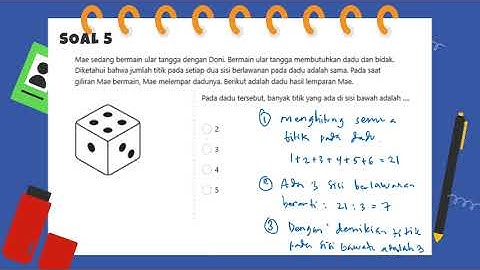 SOAL 5
Mae sedang bermain ular tangga dengan Doni. Bermain ular tangga membutuhkan dadu dan bidak.
Diketahui bahwa jumlah titik pada setiap dua sisi berlawanan pada dadu adalah sama. Pada saat
giliran Mae bermain, Mae melempar dadunya. Berikut adalah dadu hasil lemparan Mae.
Pada dadu tersebut, banyak titik yang ada di sisi bawah adalah ....
2
3
4
5
① menghitung semua
titik pada dadu.
1+2+3+4+5+6 = 21
② Ada 3 sisi berlawanan
berarti : 21 : 3 = 7
③ Dengan demikian titik
pada sisi bawah adalah 3